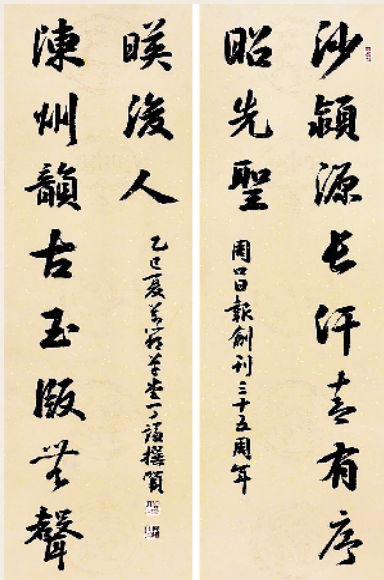 沙潁源長汗青有序
昭先聖
周口日報創刊三十五周年
陳州韻古玉版無聲
暎後人
乙巳夏草堂一丁謹撰賀